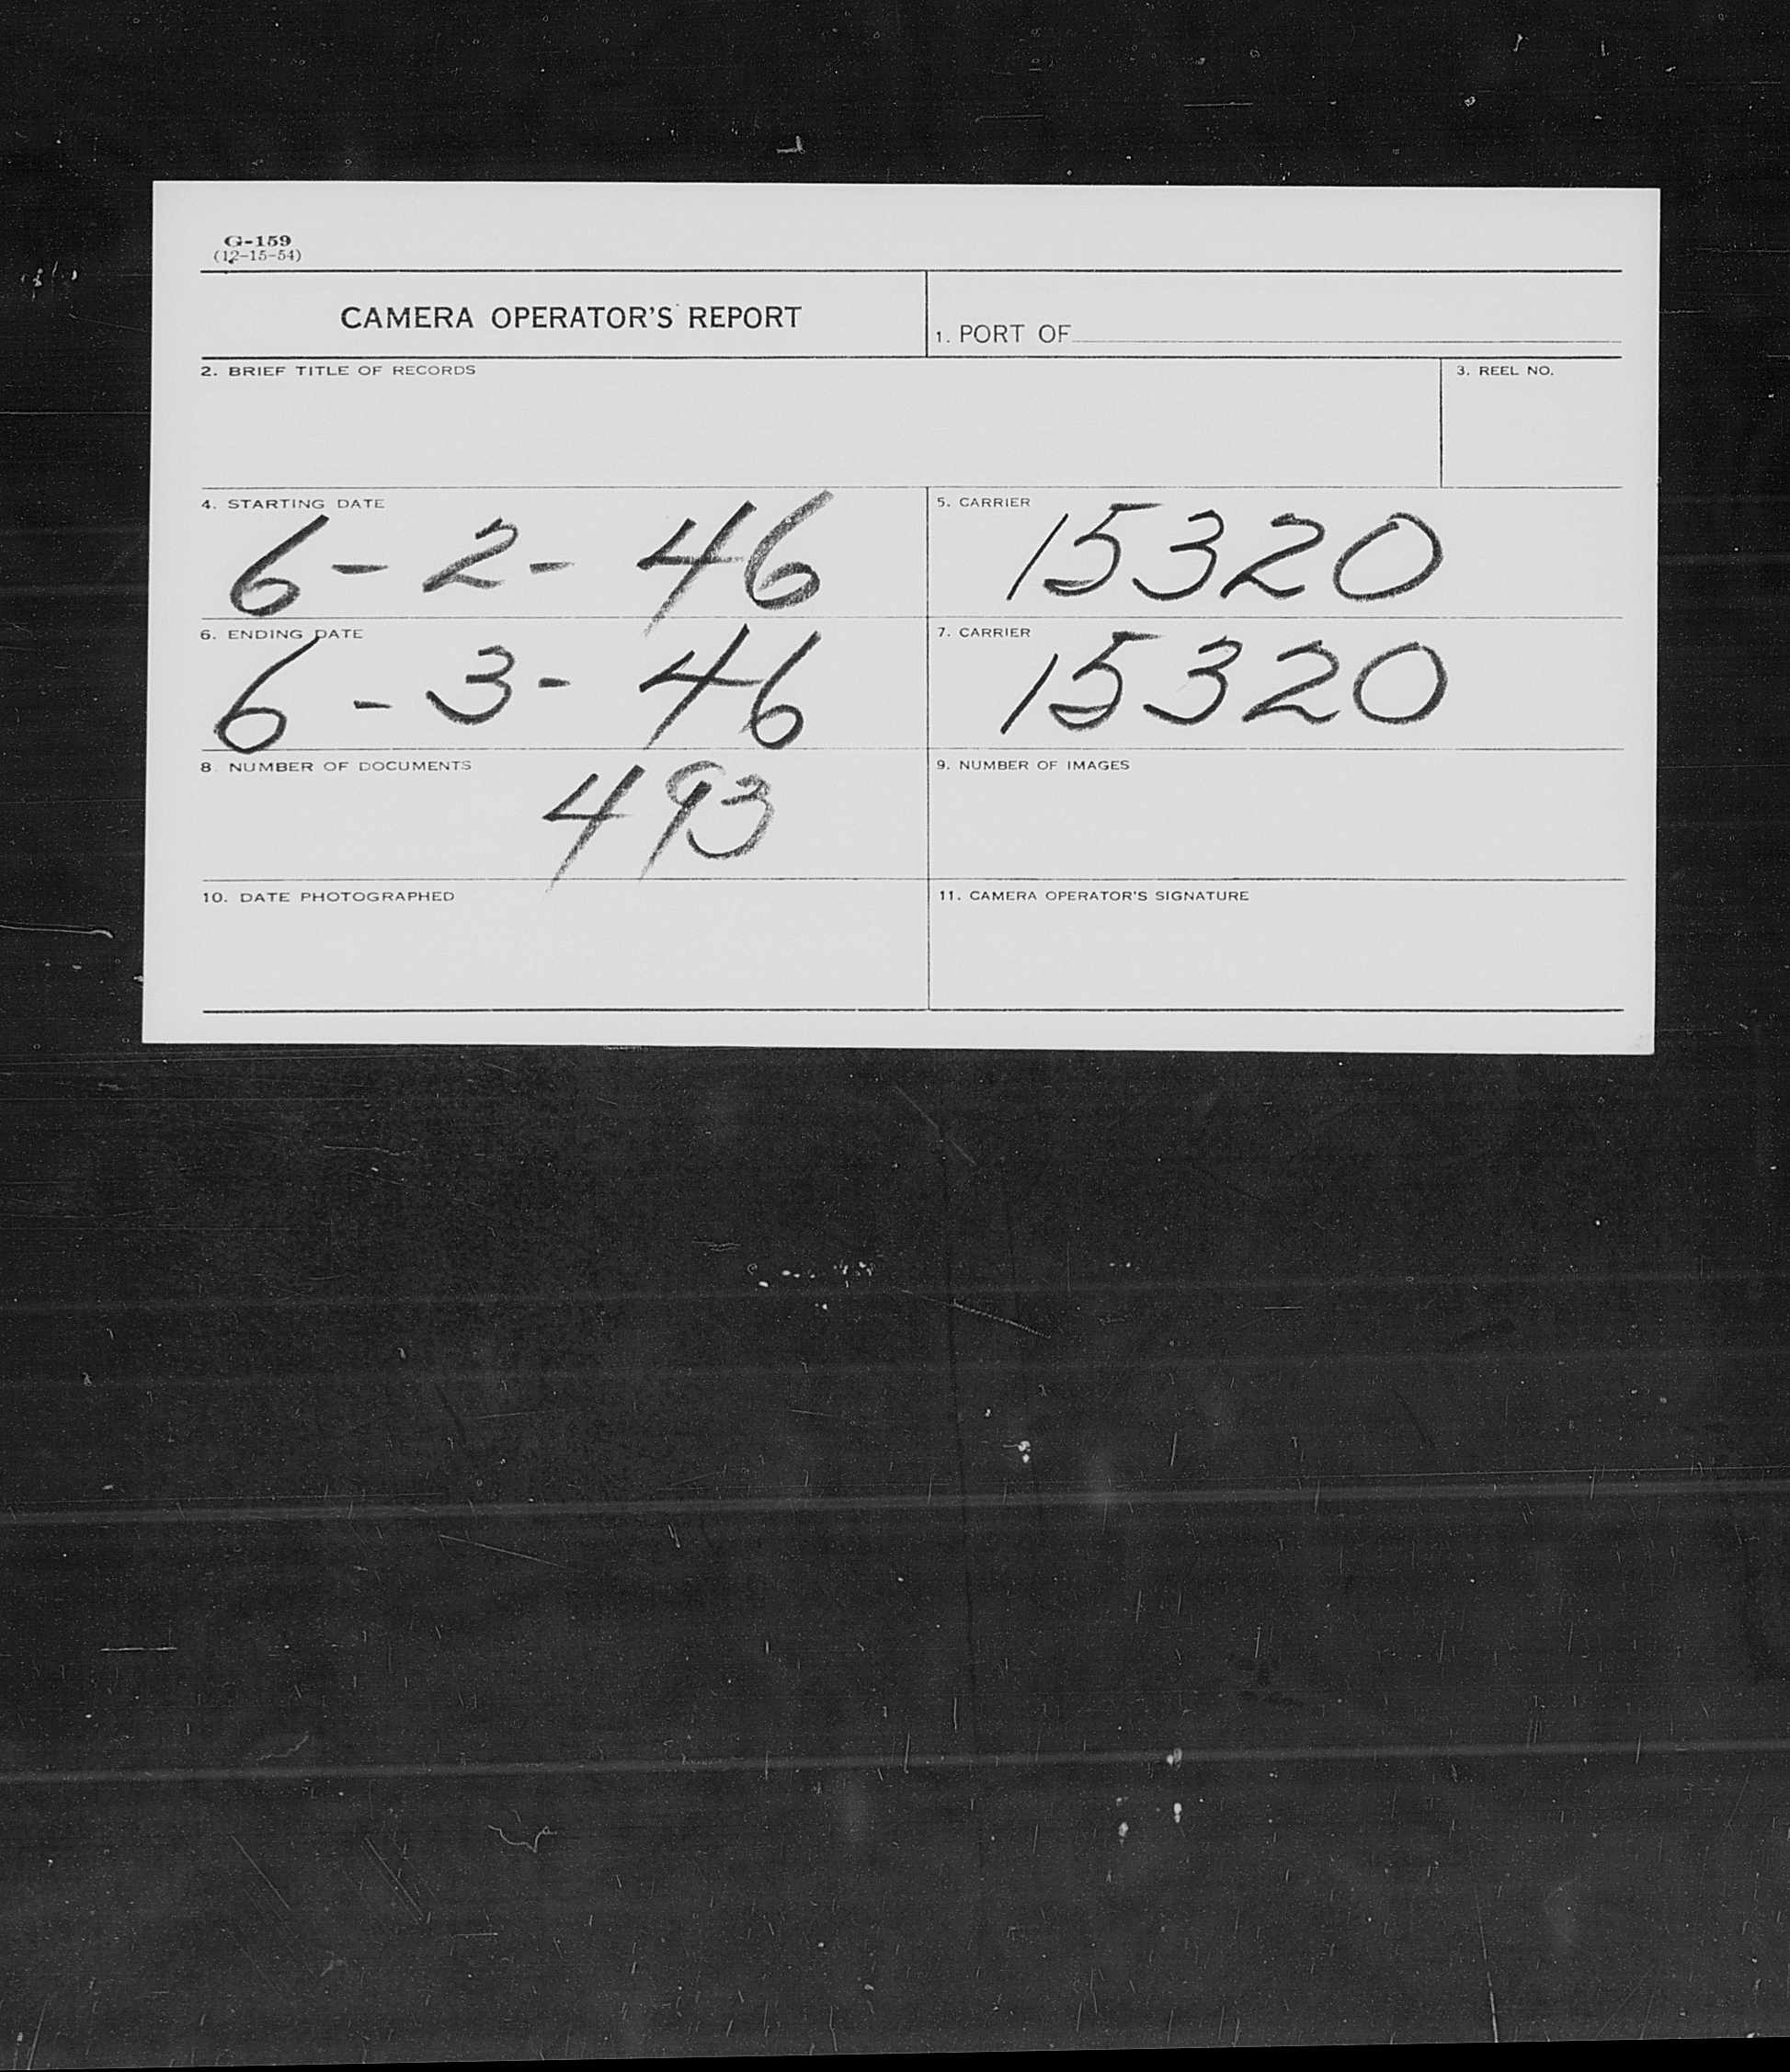 G-159
(12-15-54)
CAMERA OPERATOR'S REPORT
1. PORT OF
2. BRIEF TITLE OF RECORDS
3. REEL NO.
4. STARTING DATE
6-2-46
5. CARRIER
15320
6. ENDING DATE
6-3-46
7. CARRIER
15320
8. NUMBER OF DOCUMENTS
493
9. NUMBER OF IMAGES
10. DATE PHOTOGRAPHED
11. CAMERA OPERATOR'S SIGNATURE